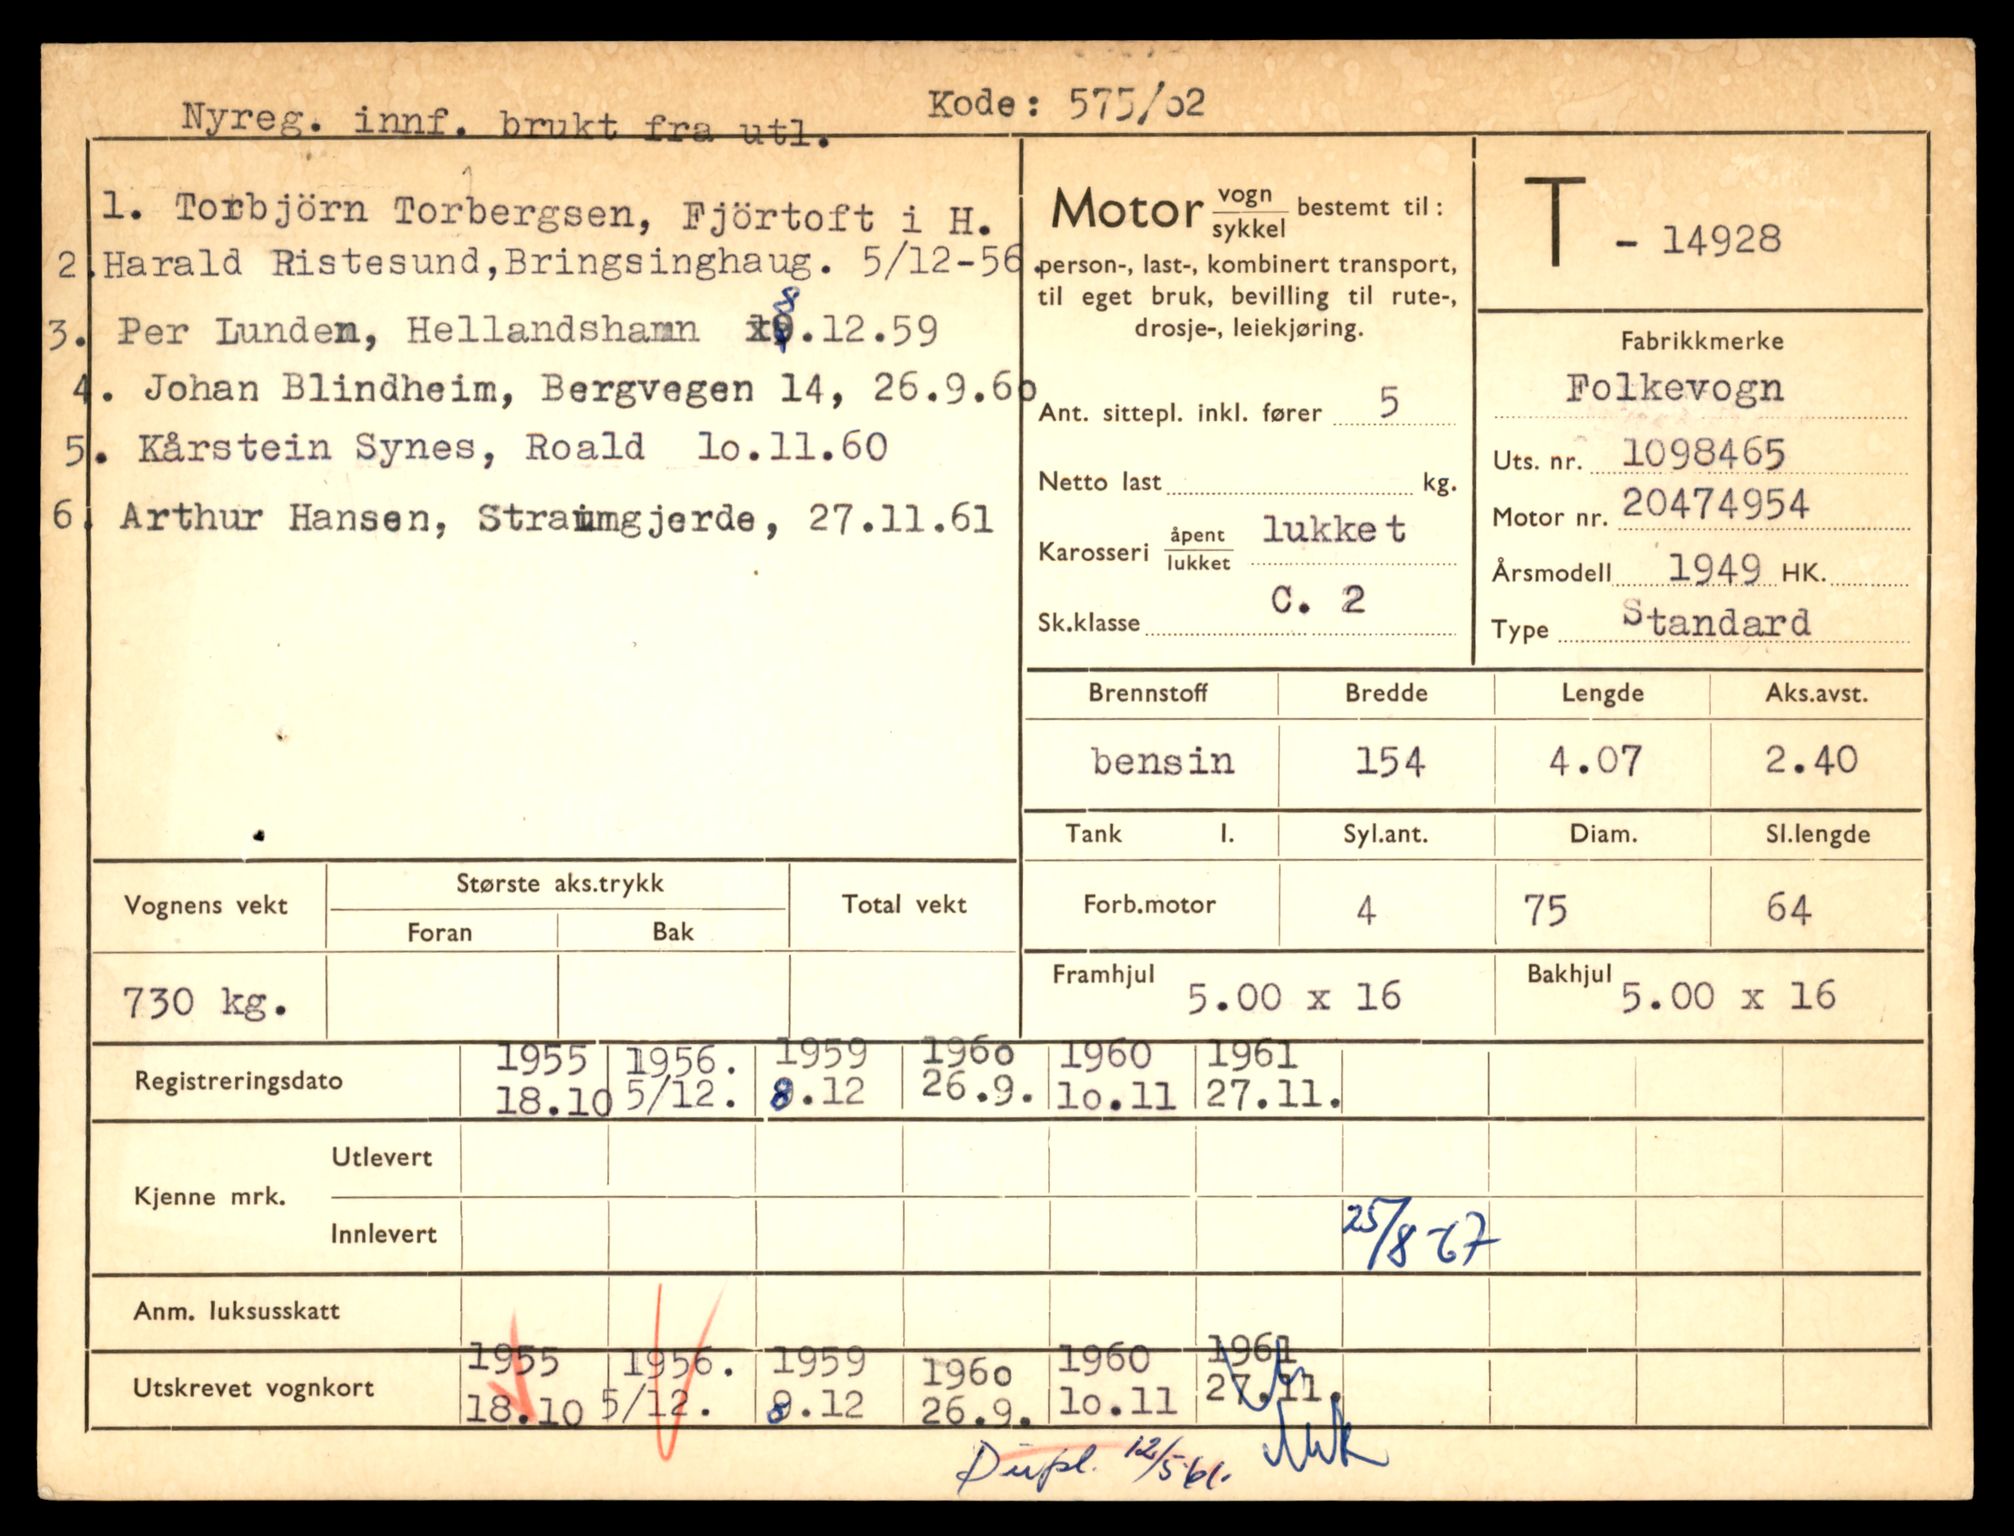 Nyreg. innf. brukt fra utl.
Kode: 575/o2
1. Torbjörn Torbergsen, Fjörtoft i H.
2.Harald Ristesund,Bringsinghaug. 5/12-56.
3. Per Lunden, Hellandshamn 8.12.59
4. Johan Blindheim, Bergvegen 14, 26.9.6o
5. Kårstein Synes, Roald lo.11.60
6. Arthur Hansen, Straumgjerde, 27.11.61
Motor vogn/sykkel bestemt til:
person-, last-, kombinert transport,
til eget bruk, bevilling til rute-,
drosje-, leiekjøring.
Ant. sittepl. inkl. fører 5
Netto last kg.
Karosseri åpent/lukket lukket
Sk.klasse C. 2
T - 14928
Fabrikkmerke
Folkevogn
Uts. nr. 1098465
Motor nr. 20474954
Årsmodell 1949 HK.
Type Standard
Brennstoff Bredde Lengde Aks.avst.
bensin 154 4.07 2.40
Tank l. Syl.ant. Diam. Sl.lengde
Forb.motor 4 75 64
Framhjul 5.00 x 16 Bakhjul 5.00 x 16
Vognens vekt Største aks.trykk Total vekt
Foran Bak
730 kg.
Registreringsdato 1955 1956. 1959 196o 1960 1961
18.10 5/12. 8.12 26.9. lo.11 27.11.
Kjenne mrk. Utlevert
Innlevert 25/8-67
Anm. luksusskatt
Utskrevet vognkort 1955 1956. 1959 196o 1960 1961
18.10 5/12. 8.12 26.9. lo.11 27.11.
Dupl. 12/5 61.